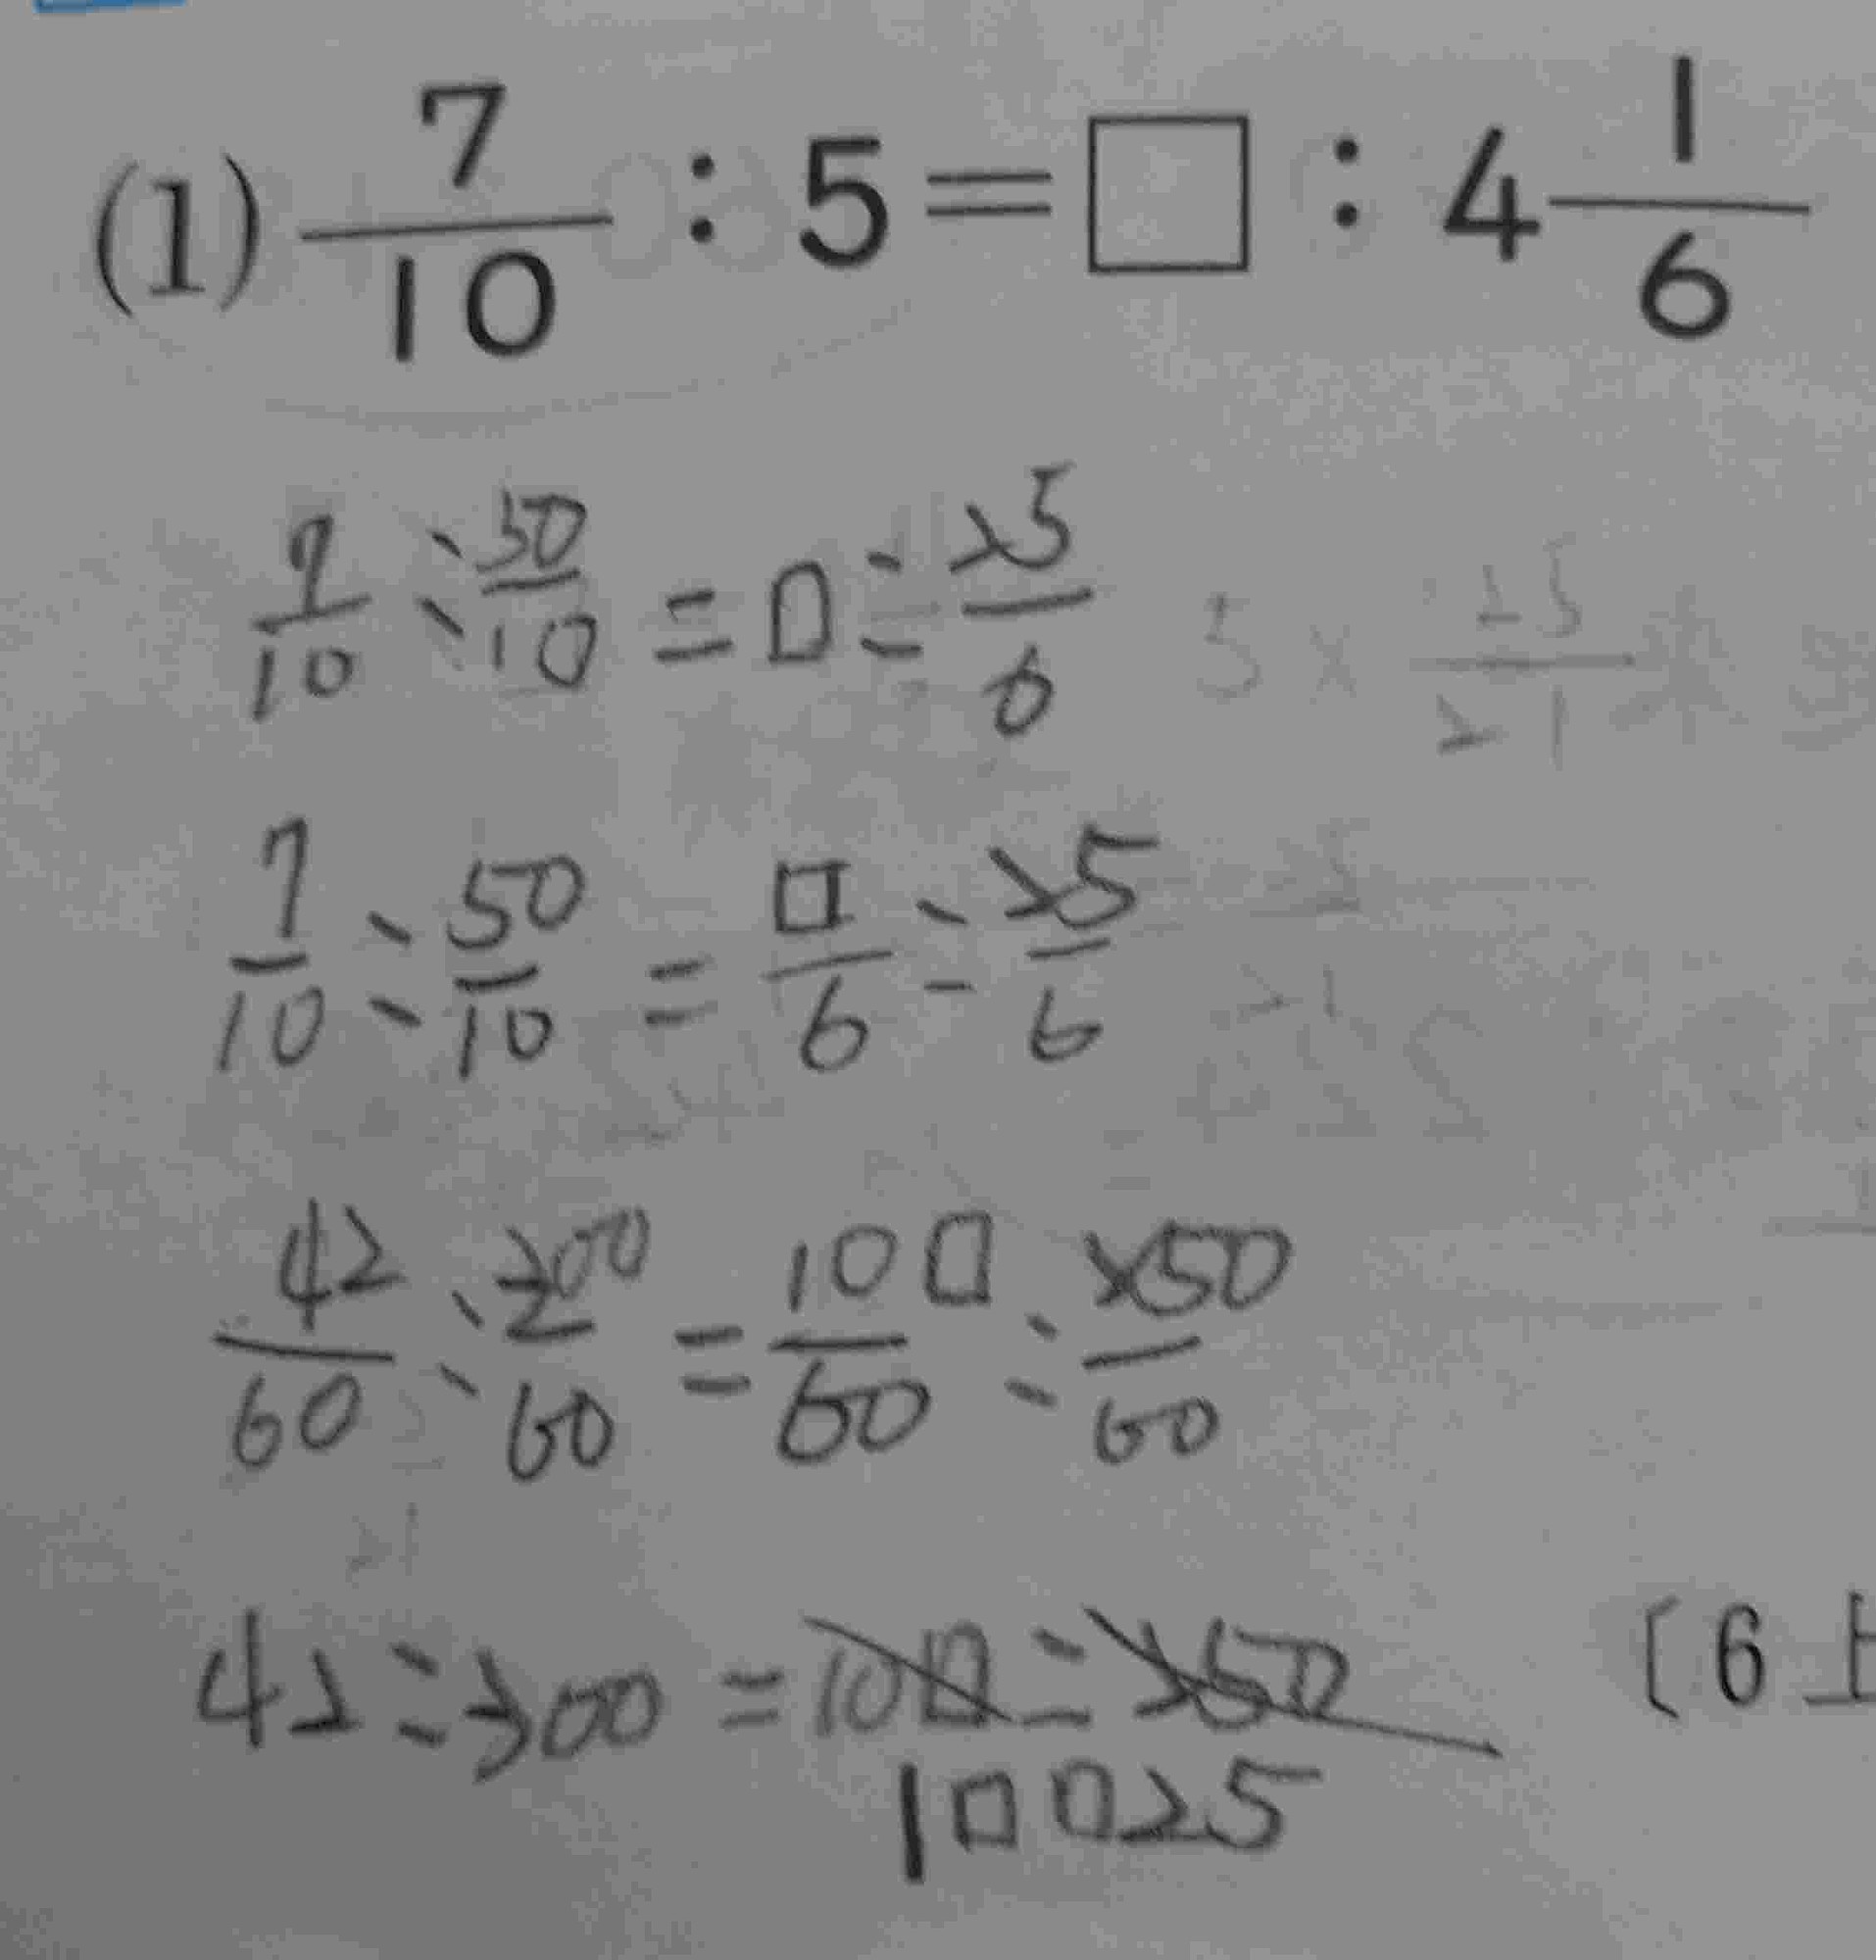 (1) 7/10 : 5 = □ : 4 1/6
7/10 : 50/10 = □ : 25/6
7/10 : 50/10 = □/6 : 25/6
42/60 : 300/60 = 10□/60 : 250/60
42 : 300 = 10□ : 250
10□ 25
〔6上